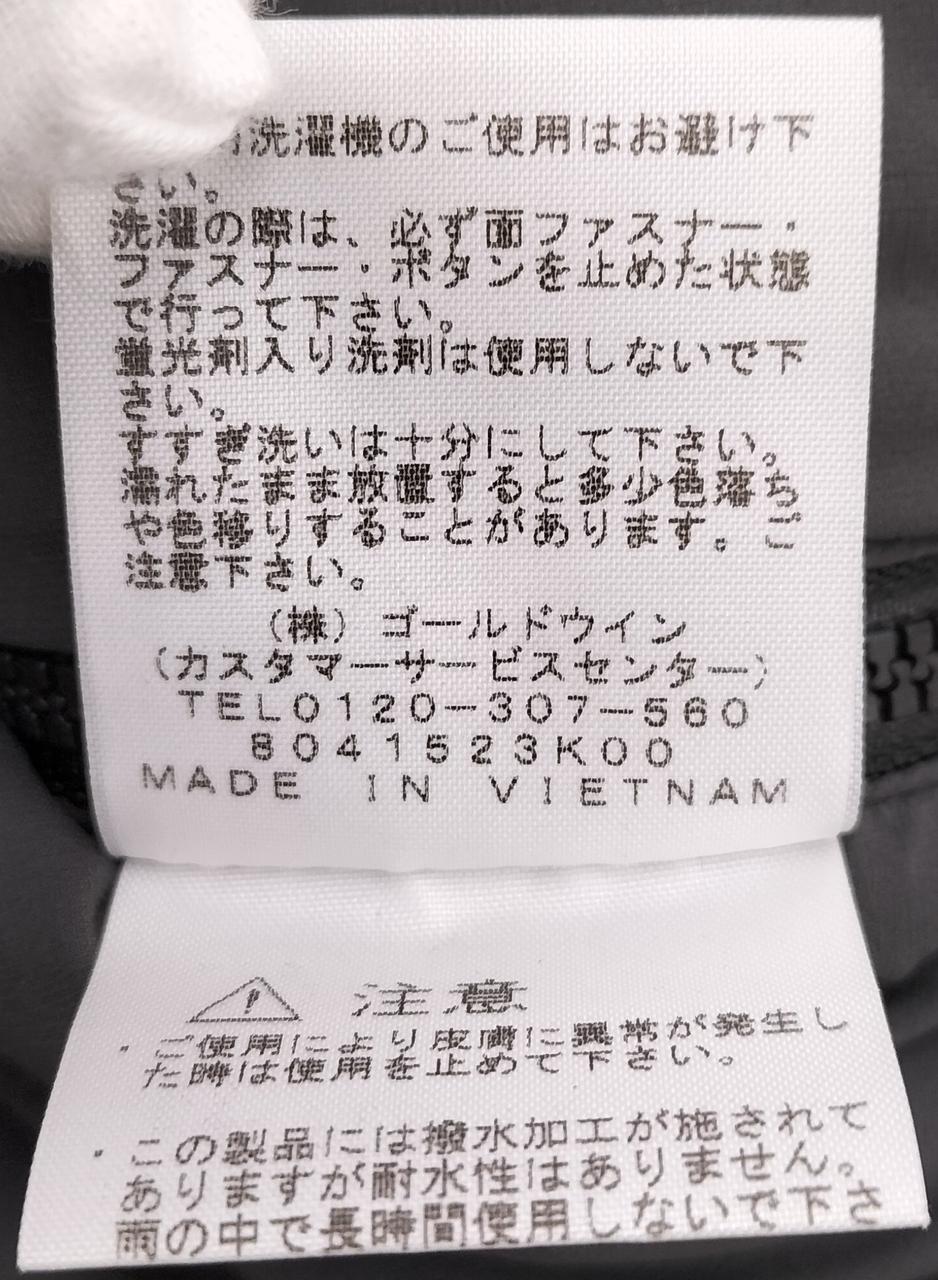 洗濯機のご使用はお避け下
さい。
洗濯の際は、必ず面ファスナー・
ファスナー・ボタンを止めた状態
で行って下さい。
蛍光剤入り洗剤は使用しないで下
さい。
すすぎ洗いは十分にして下さい。
濡れたまま放置すると多少色落ち
や色移りすることがあります。ご
注意下さい。
(株) ゴールドウイン
(カスタマーサービスセンター)
TEL0120-307-560
8041523K00
MADE IN VIETNAM
注意
・ご使用により皮膚に異常が発生し
た時は使用を止めて下さい。
・この製品には撥水加工が施されて
ありますが耐水性はありません。
雨の中で長時間使用しないで下さ